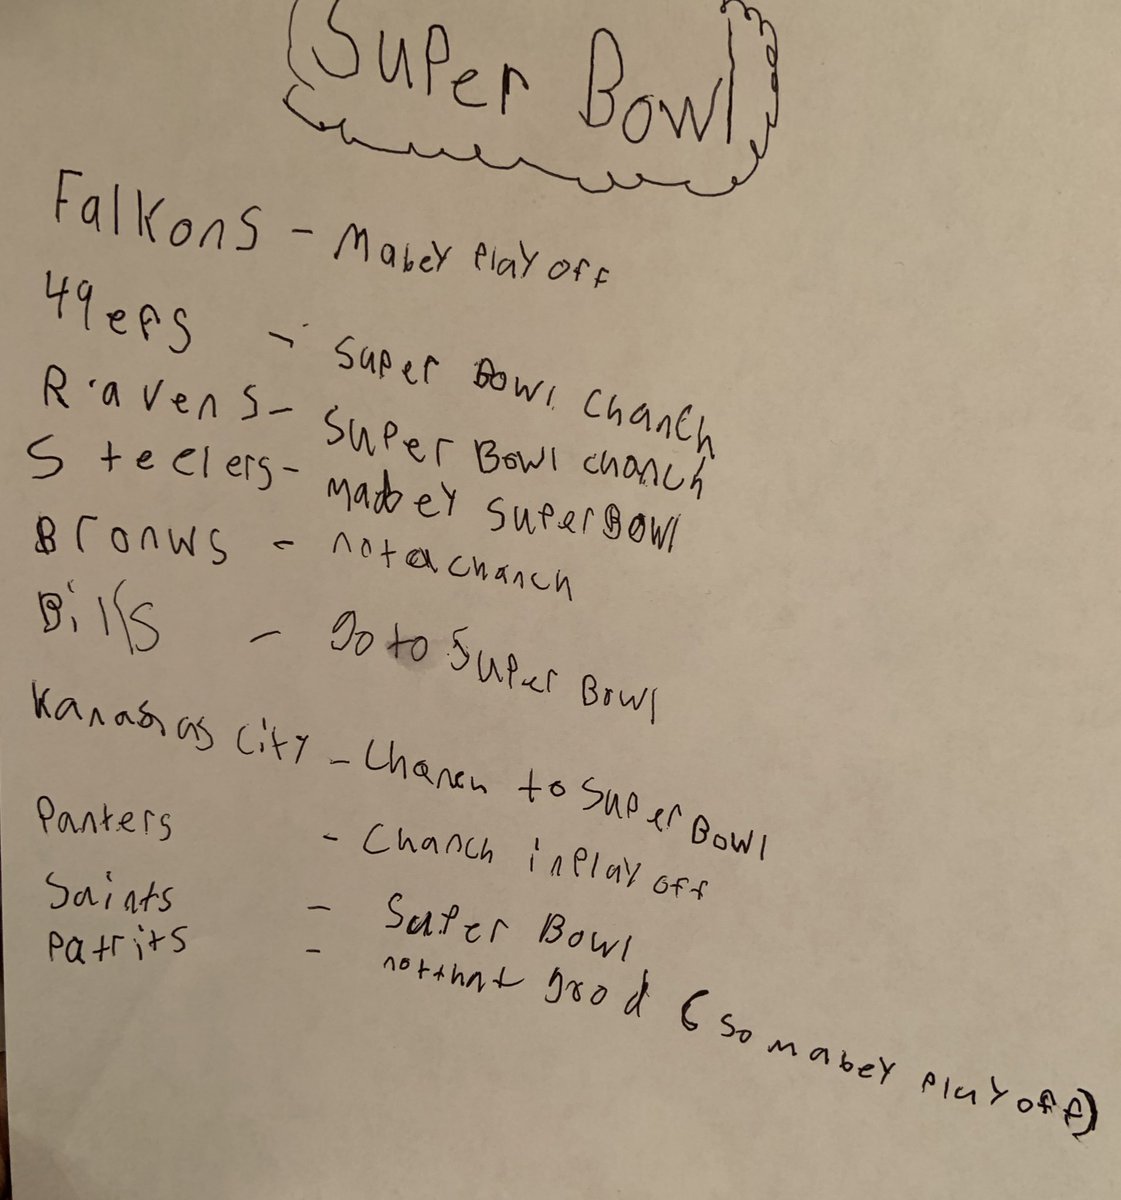 Super Bowl
Falkons - Mabey Play off
49ers - Super Bowl Chanch
Ravens - Super Bowl chanch
Steelers - Mabey Super Bowl
Bronws - not a chanch
Bills - go to Super Bowl
Kanasas City - Chanch to Super Bowl
Panters - Chanch in Play off
Saints - Super Bowl
Patrits - not that good (so mabey Play off)